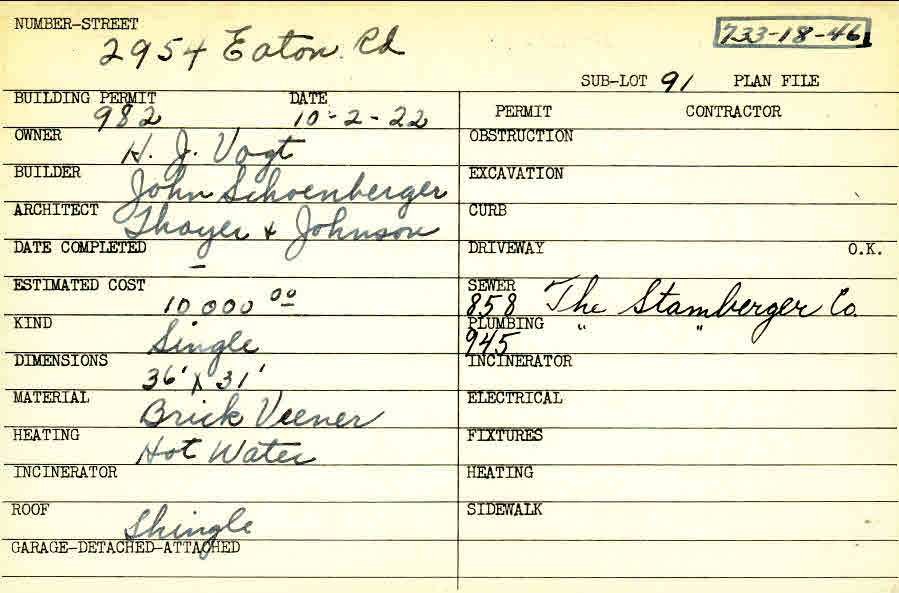 NUMBER-STREET
2954 Eaton Rd
733-18-46
SUB-LOT 91 PLAN FILE
BUILDING PERMIT DATE
982 10-2-22
OWNER
H. J. Vogt
BUILDER
John Schoenberger
ARCHITECT
Thayer & Johnson
DATE COMPLETED
-
ESTIMATED COST
10 000 00
KIND
Single
DIMENSIONS
36' x 31'
MATERIAL
Brick Veener
HEATING
Hot Water
INCINERATOR
ROOF
Shingle
GARAGE-DETACHED-ATTACHED
PERMIT CONTRACTOR
OBSTRUCTION
EXCAVATION
CURB
DRIVEWAY O.K.
SEWER
858 The Stamberger Co.
PLUMBING " "
945
INCINERATOR
ELECTRICAL
FIXTURES
HEATING
SIDEWALK